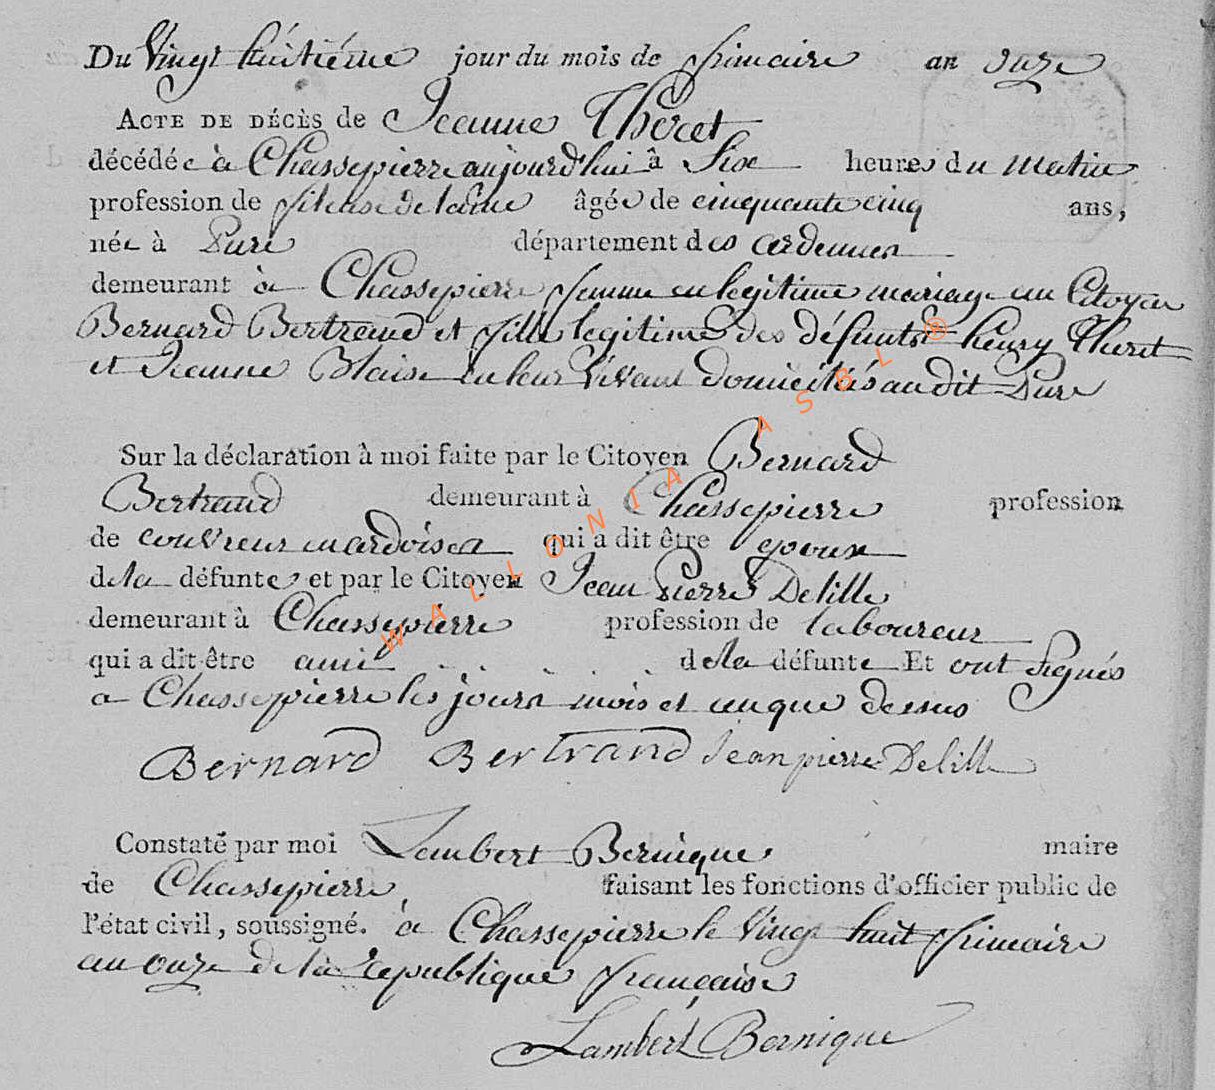 Du Vingt huitiéme jour du mois de frimaire an onze
ACTE DE DÉCÈS de Jeanne Theret
décédée à Chassepierre aujourd'hui à Six heures du matin
profession de fileuse de laine âgée de cinquante cinq ans,
née à Pure département des ardennes
demeurant à Chassepierre femme en legitime mariage au Citoyen
Bernard Bertrand et fille legitime des défunts henry Theret
et Jeanne Blaise en leur Vivant domiciliés au dit Pure
Sur la déclaration à moi faite par le Citoyen Bernard
Bertrand demeurant à Chassepierre profession
de couvreur en ardoises qui a dit être epoux
de la défunte et par le Citoyen Jean Pierre Delille
demeurant à Chassepierre profession de laboureur
qui a dit être ami . . . . de la défunte Et ont Signés
a Chassepierre les jours mois et an que dessus
Bernard Bertrand Jean pierre Delille
Constaté par moi Lambert Bernique maire
de Chassepierre faisant les fonctions d'officier public de
l'état civil, soussigné. à Chassepierre le Vingt huit frimaire
an onze de la republique francaise
Lambert Bernique
WALLONIA ASBL ®